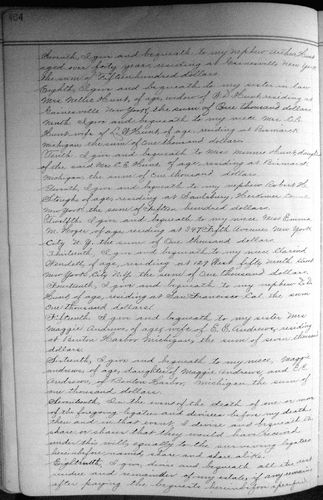 464
Seventh, I give and bequeath to my nephew Arthur Hunt
aged over forty years residing at Gainesville New York
the sum of Fifteen hundred dollars
Eighth, I give and bequeath to my sister in law
Mrs Nellie Hunt, of age, widow of Hunt residing at
Gainesville New York the sum of One thousand dollars
Ninth I give and bequeath to my niece Mrs C.E.
Hunt wife of Hunt of age, residing at Bismark
Michigan the sum of one thousand dollars
Tenth I give and bequeath to Miss Hunt daughter
of the said Mrs C.E. Hunt, of age, residing at Bismark,
Michigan the sum of One thousand dollars
Eleventh, I give and bequeath to my nephew Robert H.
of age, residing at Salisbury Herkimer County
New York the sum of Fifteen hundred dollars.
Twelfth, I give and bequeath to my niece Miss Emma
M. of age residing at 247 Fifth Avenue New York
City N.Y. the sum of One thousand dollars
Thirteenth, I give and bequeath to my niece
of age, residing at 157 West fifty Ninth Street
New York City N.Y. the sum of One thousand dollars,
Fourteenth, I give and bequeath to my nephew
Hunt of age, residing at San Francisco Cal. the sum
one thousand dollars
Fifteenth I give and bequeath to my sister Mrs
Maggie Andrews, of age, wife of E.E. Andrews, residing
at Benton Harbor Michigan, the sum of seven thousand
dollars.
Sixteenth, I give and bequeath to my niece, Maggie
Andrews, of age, daughter of Maggie Andrews and E.E.
Andrews, of Benton Harbor, Michigan the sum of
one thousand dollars.
Seventeenth, In the event of the death of one or more
of the foregoing legatees and devisees before my death
then and in that event, I devise and bequeath the
share or shares that they would have received
under this will, equally to the surviving legatees
herein before named share and share alike.
Eighteenth, I give, devise and bequeath all the rest
residue and remainder of my estate, if any remains
after paying the bequests hereinbefore specified